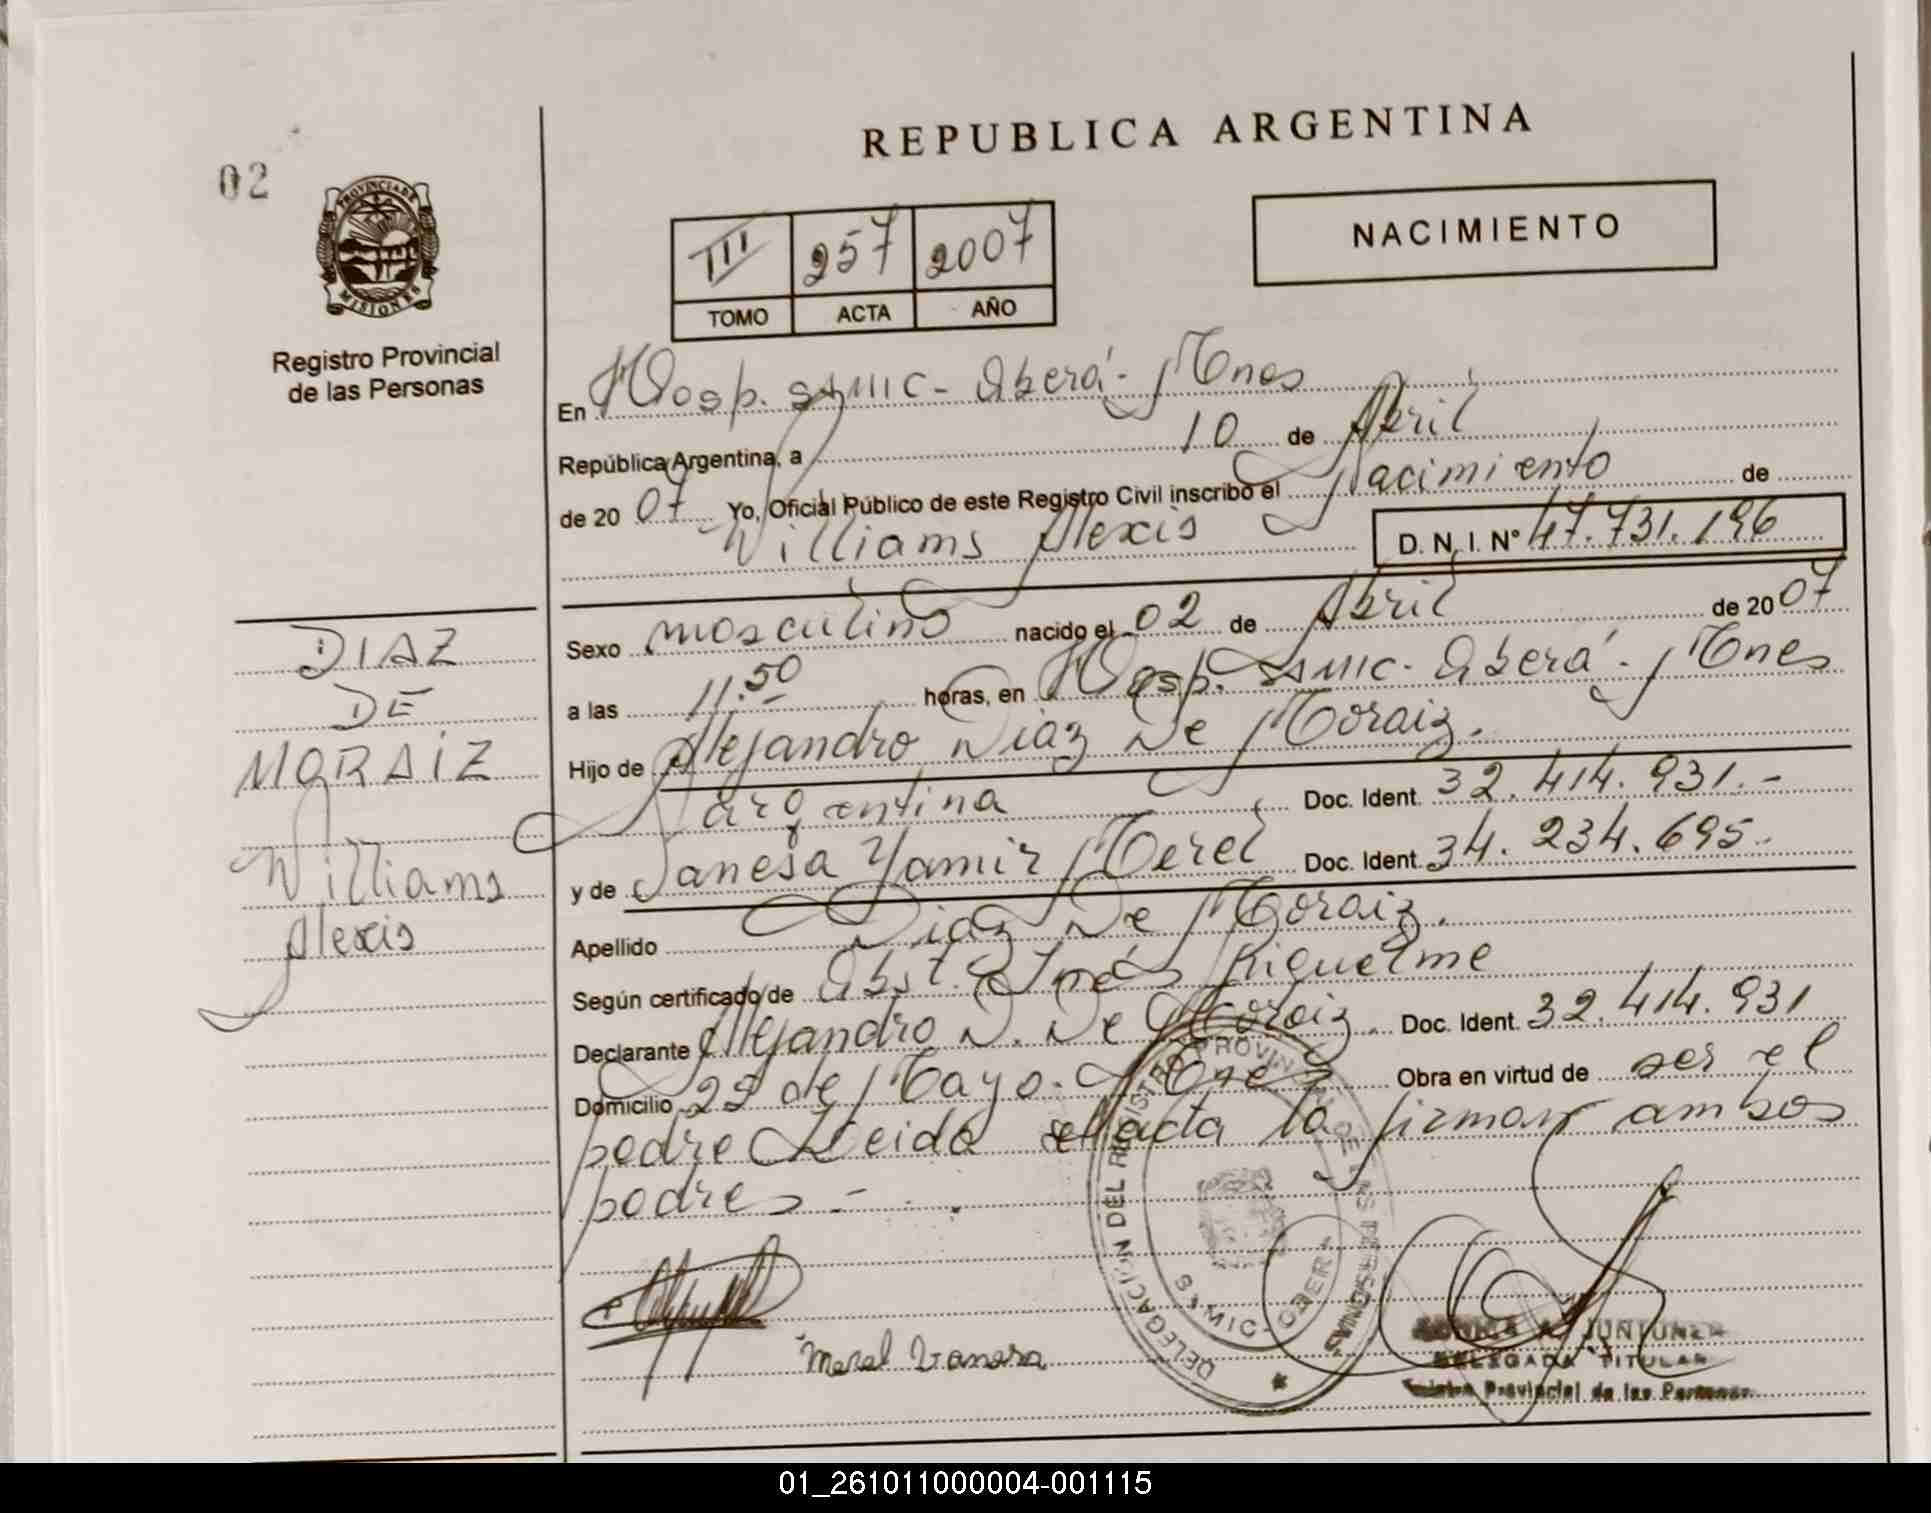 REPUBLICA ARGENTINA
02
PROVINCIA DE
MISIONES
Registro Provincial
de las Personas
III 257 2007
TOMO ACTA AÑO
NACIMIENTO
En Hosp. SAMIC - Oberá - Mnes
República Argentina, a 10 de Abril
de 20 07 Yo, Oficial Público de este Registro Civil inscribo el Nacimiento de
Williams Alexis D. N. I. N° 47.731.196
DIAZ
DE
MORAIZ
Williams
Alexis
Sexo masculino nacido el 02 de Abril de 20 07
a las 11.50 horas, en Hosp. SAMIC - Oberá - Mnes
Hijo de Alejandro Diaz De Moraiz.
argentina Doc. Ident. 32.414.931.-
y de Vanesa Yamir Merel Doc. Ident. 34.234.695.-
Apellido Diaz De Moraiz.
Según certificado de Obst. Inés Riquelme
Declarante Alejandro D. De Moraiz. Doc. Ident. 32.414.931
Domicilio 25 de Mayo - Mnes Obra en virtud de ser el
padre Leida el acta la firman ambos
padres -
Merel Vanesa
DELEGACION DEL REGISTRO PROVINCIAL DE LAS PERSONAS
SAMIC - OBERA
JUNTUNEN
DELEGADA TITULAR
Provincial de las Personas
01_261011000004-001115